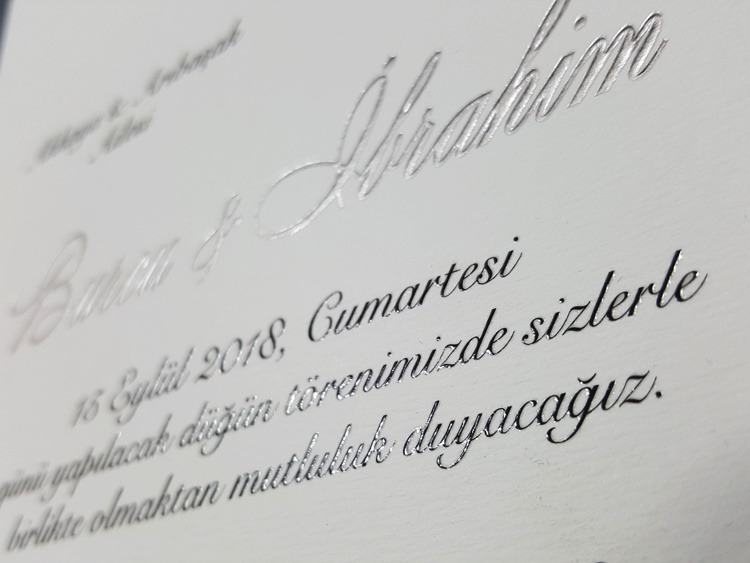 Burcu & İbrahim
15 Eylül 2018, Cumartesi
günü yapılacak düğün törenimizde sizlerle
birlikte olmaktan mutluluk duyacağız.